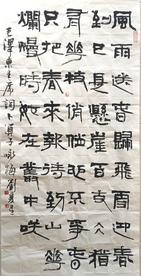 風雨送春歸飛雪迎春
到已是懸崖百丈冰猶
有華枝俏俏也不爭春
只把春來報待到山華
爛漫時她在叢中咲
毛澤東主席詞卜算子咏梅劉